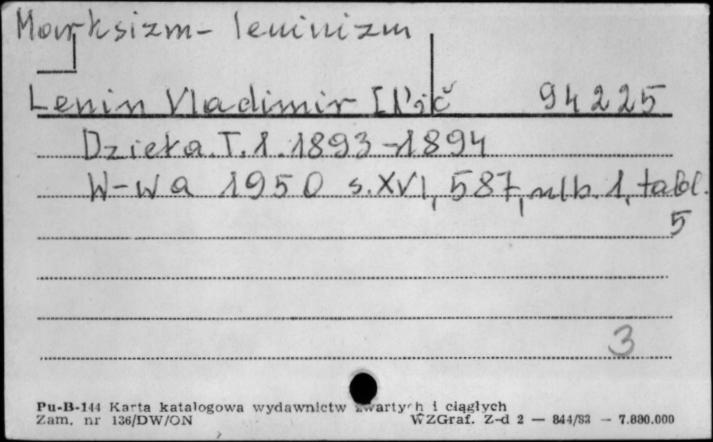 Marksizm-leninizm
Lenin Vladimir Il'ič 94225
Dzieła. T. 1. 1893-1894
W-wa 1950 s. XVI, 587, nlb. 1, tabl.
5
3
Pu-B-144 Karta katalogowa wydawnictw zwartych i ciągłych
Zam. nr 136/DW/ON WZGraf. Z-d 2 — 844/83 — 7.880.000